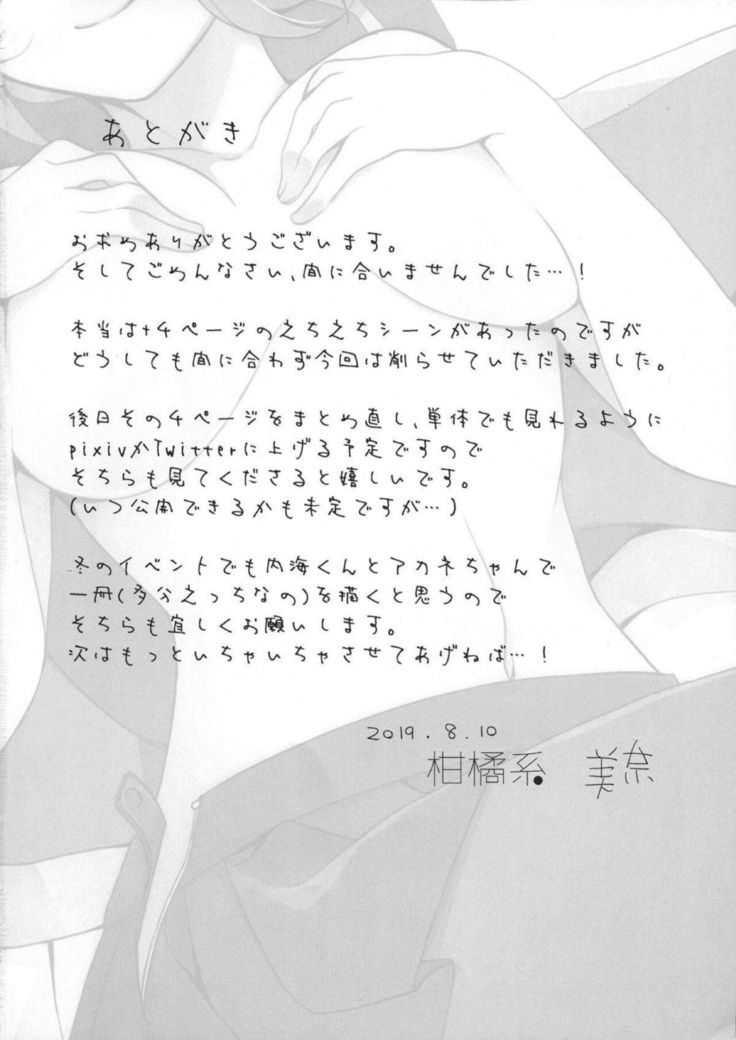 あとがき
お求めありがとうございます。
そしてごめんなさい、間に合いませんでした…!
本当は+4ページのえちえちシーンがあったのですが
どうしても間に合わず今回は削らせていただきました。
後日その4ページをまとめ直し、単体でも見れるように
pixivかTwitterに上げる予定ですので
そちらも見てくださると嬉しいです。
(いつ公開できるかも未定ですが…)
冬のイベントでも内海くんとアカネちゃんで
一冊(多分えっちなの)を描くと思うので
そちらも宜しくお願いします。
次はもっといちゃいちゃさせてあげねば…!
2019.8.10
柑橘系. 美奈